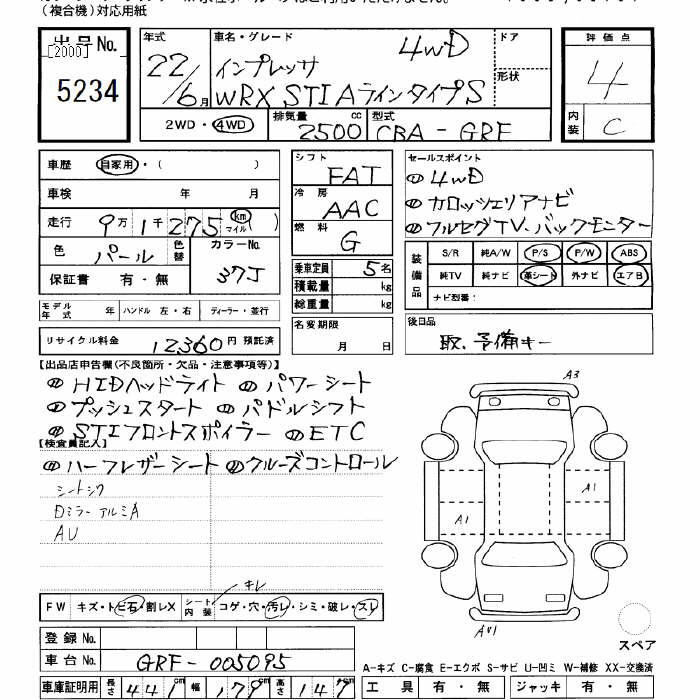 (複合機)対応用紙
出品No.
[2000]
5234
年式 車名・グレード ドア
22/6月 インプレッサ 4WD 形状
WRX STI AラインタイプS
2WD・4WD 排気量 2500 cc 型式 CBA-GRF
評価点
4
内装 C
車歴 自家用・( )
車検 年 月
走行 9万1千275 km マイル( )
色 パール 色替 カラーNo. 37J
保証書 有・無
モデル年式 年 ハンドル 左・右 ディーラー・並行
リサイクル料金 12360 円 預託済
シフト FAT
冷房 AAC
燃料 G
乗車定員 5名
積載量 kg
総重量 kg
名変期限 月 日
セールスポイント
4WD
カロッツェリアナビ
フルセグTV、バックモニター
装備品 S/R 純A/W P/S P/W ABS
純TV 純ナビ 革シート 外ナビ エアB
ナビ型番:
後日品
取、予備キー
【出品店申告欄(不良箇所・欠品・注意事項等)】
HIDヘッドライト パワーシート
プッシュスタート パドルシフト
STIフロントスポイラー ETC
【検査員記入】
ハーフレザーシート クルーズコントロール
シートシワ
Dミラー アルミA
AU
A3
A1
A1
AU1
スペア
キレ
FW キズ・トビ石・割レX シート内装 コゲ・穴・汚レ・シミ・破レ・スレ
登録No.
車台No. GRF-005095
車庫証明用 長さ 441 幅 179 高さ 147
A-キズ C-腐食 E-エクボ S-サビ U-凹ミ W-補修 XX-交換済
工具 有・無 ジャッキ 有・無